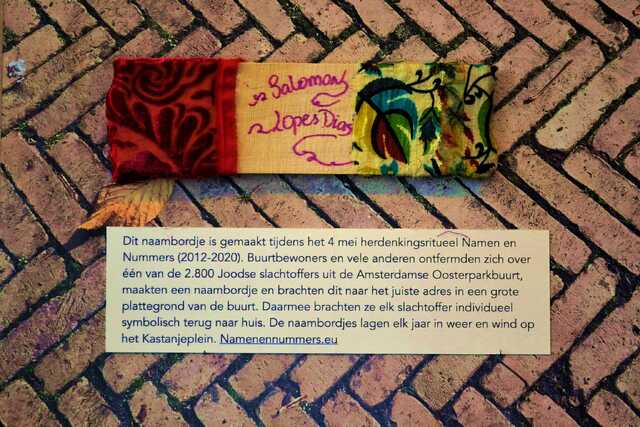 Salomon
Lopes Dias
Dit naambordje is gemaakt tijdens het 4 mei herdenkingsritueel Namen en
Nummers (2012-2020). Buurtbewoners en vele anderen ontfermden zich over
één van de 2.800 Joodse slachtoffers uit de Amsterdamse Oosterparkbuurt,
maakten een naambordje en brachten dit naar het juiste adres in een grote
plattegrond van de buurt. Daarmee brachten ze elk slachtoffer individueel
symbolisch terug naar huis. De naambordjes lagen elk jaar in weer en wind op
het Kastanjeplein. Namenennummers.eu